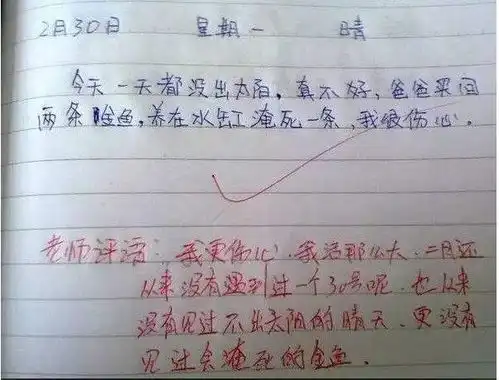 2月30日 星期一 晴
今天一天都没出太阳,真不好,爸爸买回
两条金鱼,养在水缸淹死一条,我很伤心。
老师评语:我更伤心.我活那么大.二月还
从来没有遇到过一个30号呢.也从来
没有见过不出太阳的晴天.更没有
见过会淹死的金鱼.